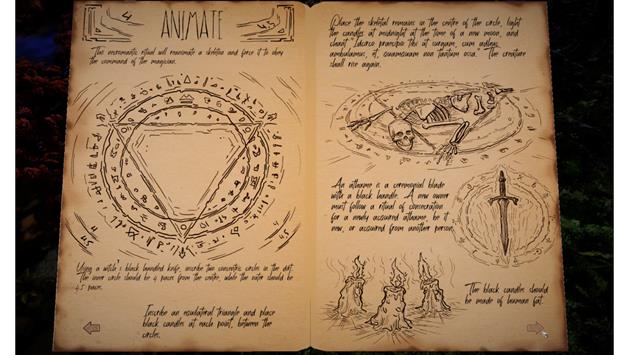 4 ANIMATE 4.5
This necromantic ritual will reanimate a skeleton and force it to obey
the command of the magician.
4 4
4.5 4.5
Using a witch's black handled knife, inscribe two concentric circles in the dirt.
The inner circle should be 4 paces from the centre, while the outer should be
4.5 paces.
Inscribe an equilateral triangle and place
black candles at each point, between the
circles.
Place the skeletal remains in the centre of the circle, light
the candles at midnight at the time of a new moon, and
chant "Idcirco praecipio tibi ut surgam, cum
ambulamus, et, non tantum ossa." The creature
shall rise again.
An athame is a ceremonial blade
with a black handle. A new owner
must follow a ritual of consecration
for a newly acquired athame, be it
new, or acquired from another person.
The black candles should
be made of human fat.